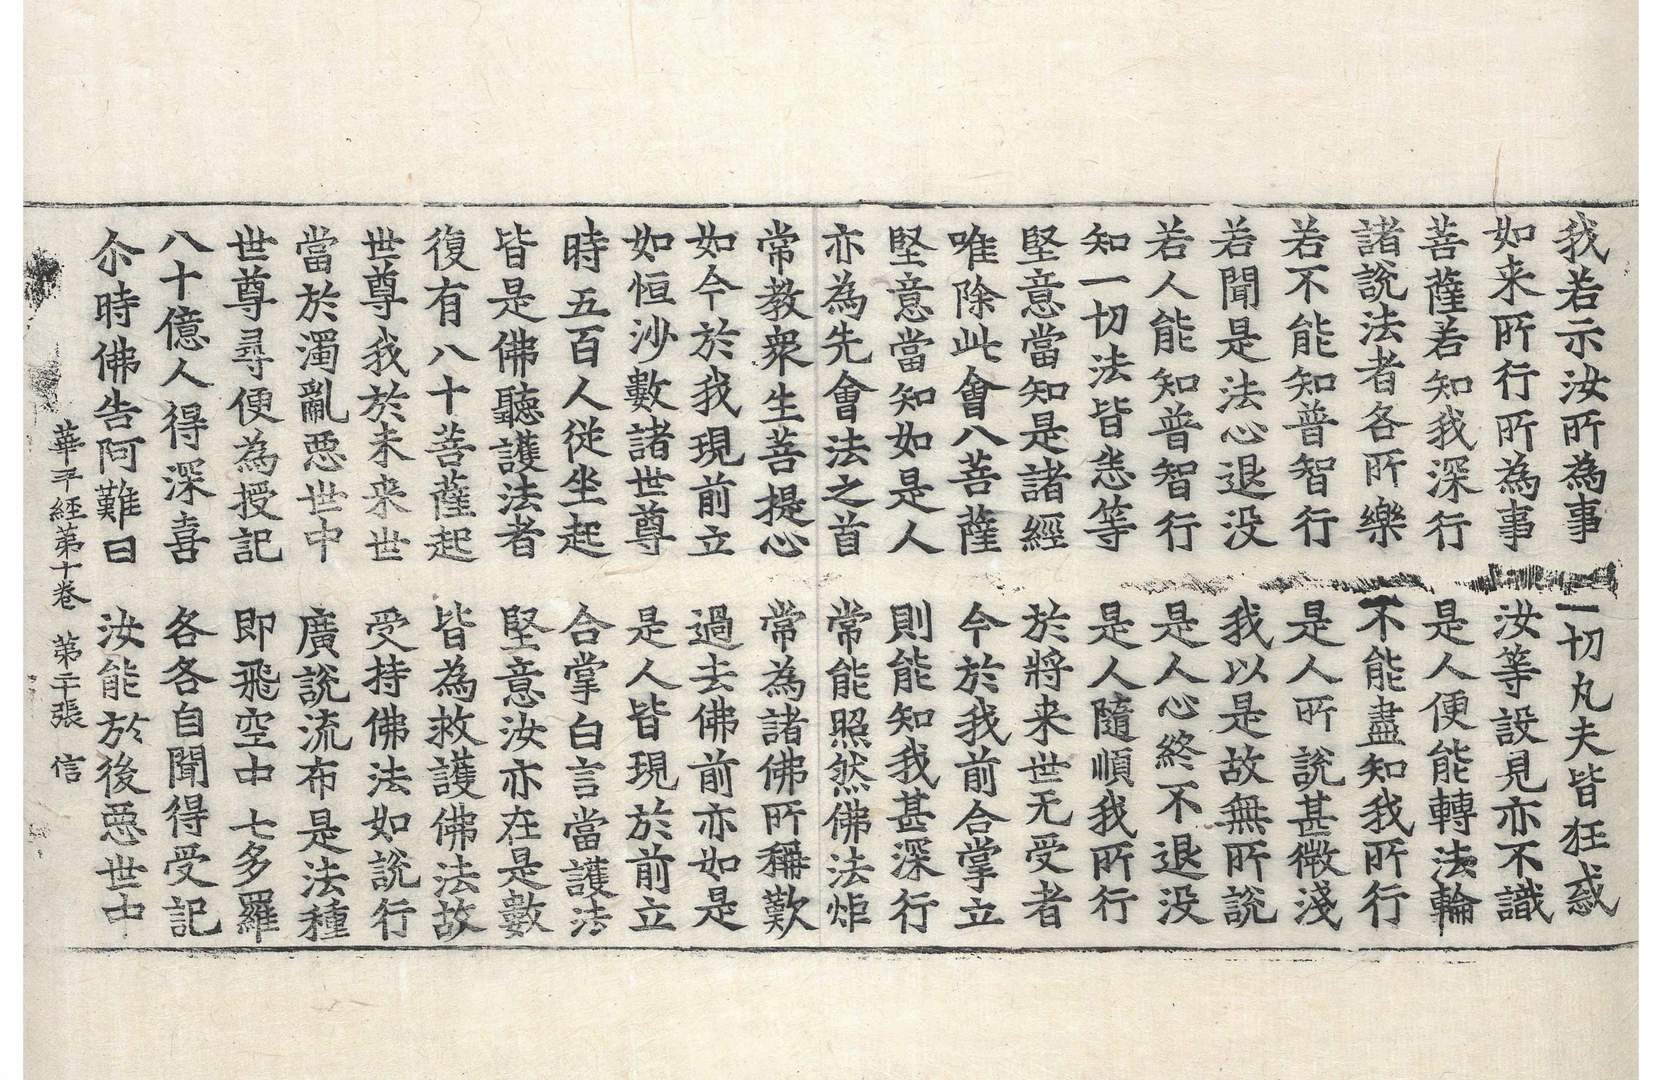 我若示汝所為事　一切凡夫皆狂惑
如来所行所為事　汝等設見亦不識
菩薩若知我深行　是人便能轉法輪
諸說法者各所樂　不能盡知我所行
若不能知普智行　是人所說甚微淺
若聞是法心退没　我以是故無所說
若人能知普智行　是人心終不退没
知一切法皆悉等　是人隨順我所行
堅意當知是諸經　於將来世无受者
唯除此會八菩薩　今於我前合掌立
堅意當知如是人　則能知我甚深行
亦為先會法之首　常能照然佛法炬
常教衆生菩提心　常為諸佛所稱歎
如今於我現前立　過去佛前亦如是
如恒沙數諸世尊　是人皆現於前立
時五百人從坐起　合掌白言當護法
皆是佛聽護法者　堅意汝亦在是數
復有八十菩薩起　皆為救護佛法故
世尊我於未来世　受持佛法如說行
當於濁亂惡世中　廣說流布是法種
世尊尋便為授記　即飛空中七多羅
八十億人得深喜　各各自聞得受記
尒時佛告阿難曰　汝能於後惡世中
華手経第十卷　第二十張　信